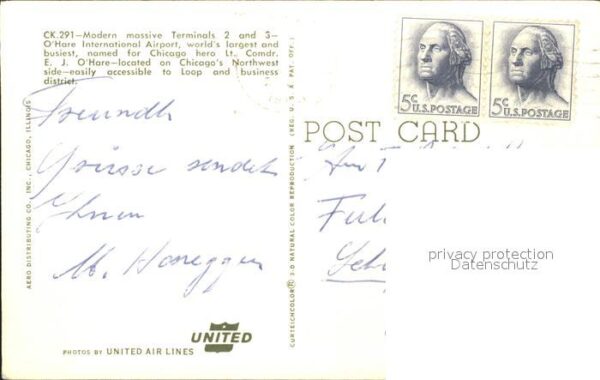 CK.291—Modern massive Terminals 2 and 3—
O'Hare International Airport, world's largest and
busiest, named for Chicago hero Lt. Comdr.
E. J. O'Hare—located on Chicago's Northwest
side—easily accessible to Loop and business
district.
Freundl
Grüsse sendet
Ihnen
M. Honegger
AERO DISTRIBUTING CO., INC., CHICAGO, ILLINOIS
CURTEICHCOLOR® 3-D NATURAL COLOR REPRODUCTION (REG. U S A PAT. OFF.)
5c U.S. POSTAGE
5c U.S. POSTAGE
POST CARD
privacy protection
Datenschutz
UNITED
PHOTOS BY UNITED AIR LINES